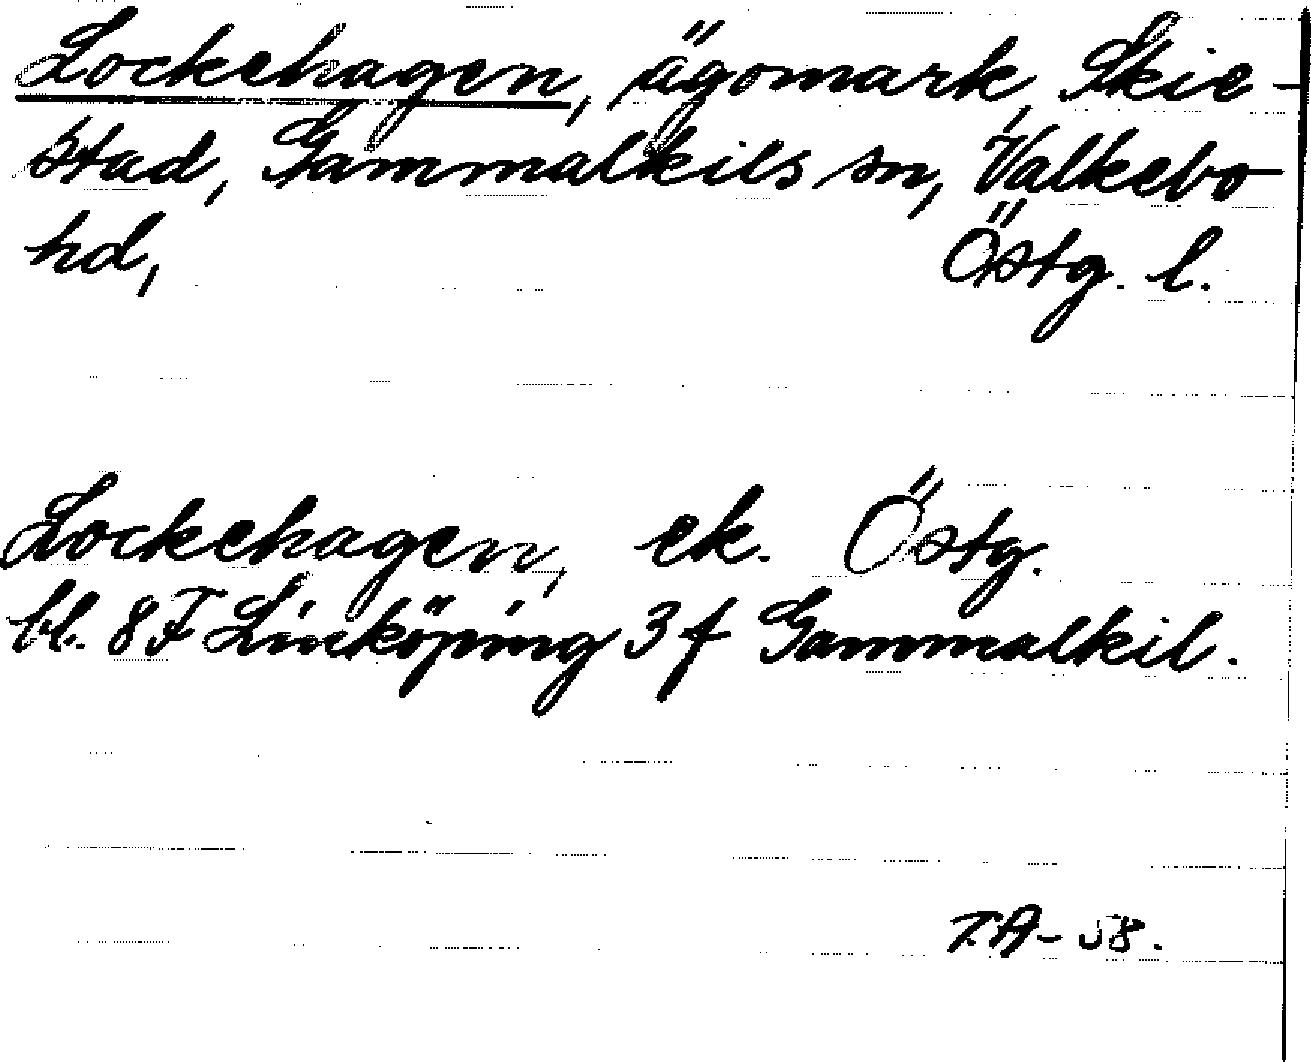 Lockehagen, ägomark, Skie-
stad, Gammalkils sn, Valkebo
hd, Östg. l.
Lockehagen, ek. Östg.
bl. 8F Linköping 3f Gammalkil.
T.A-58.